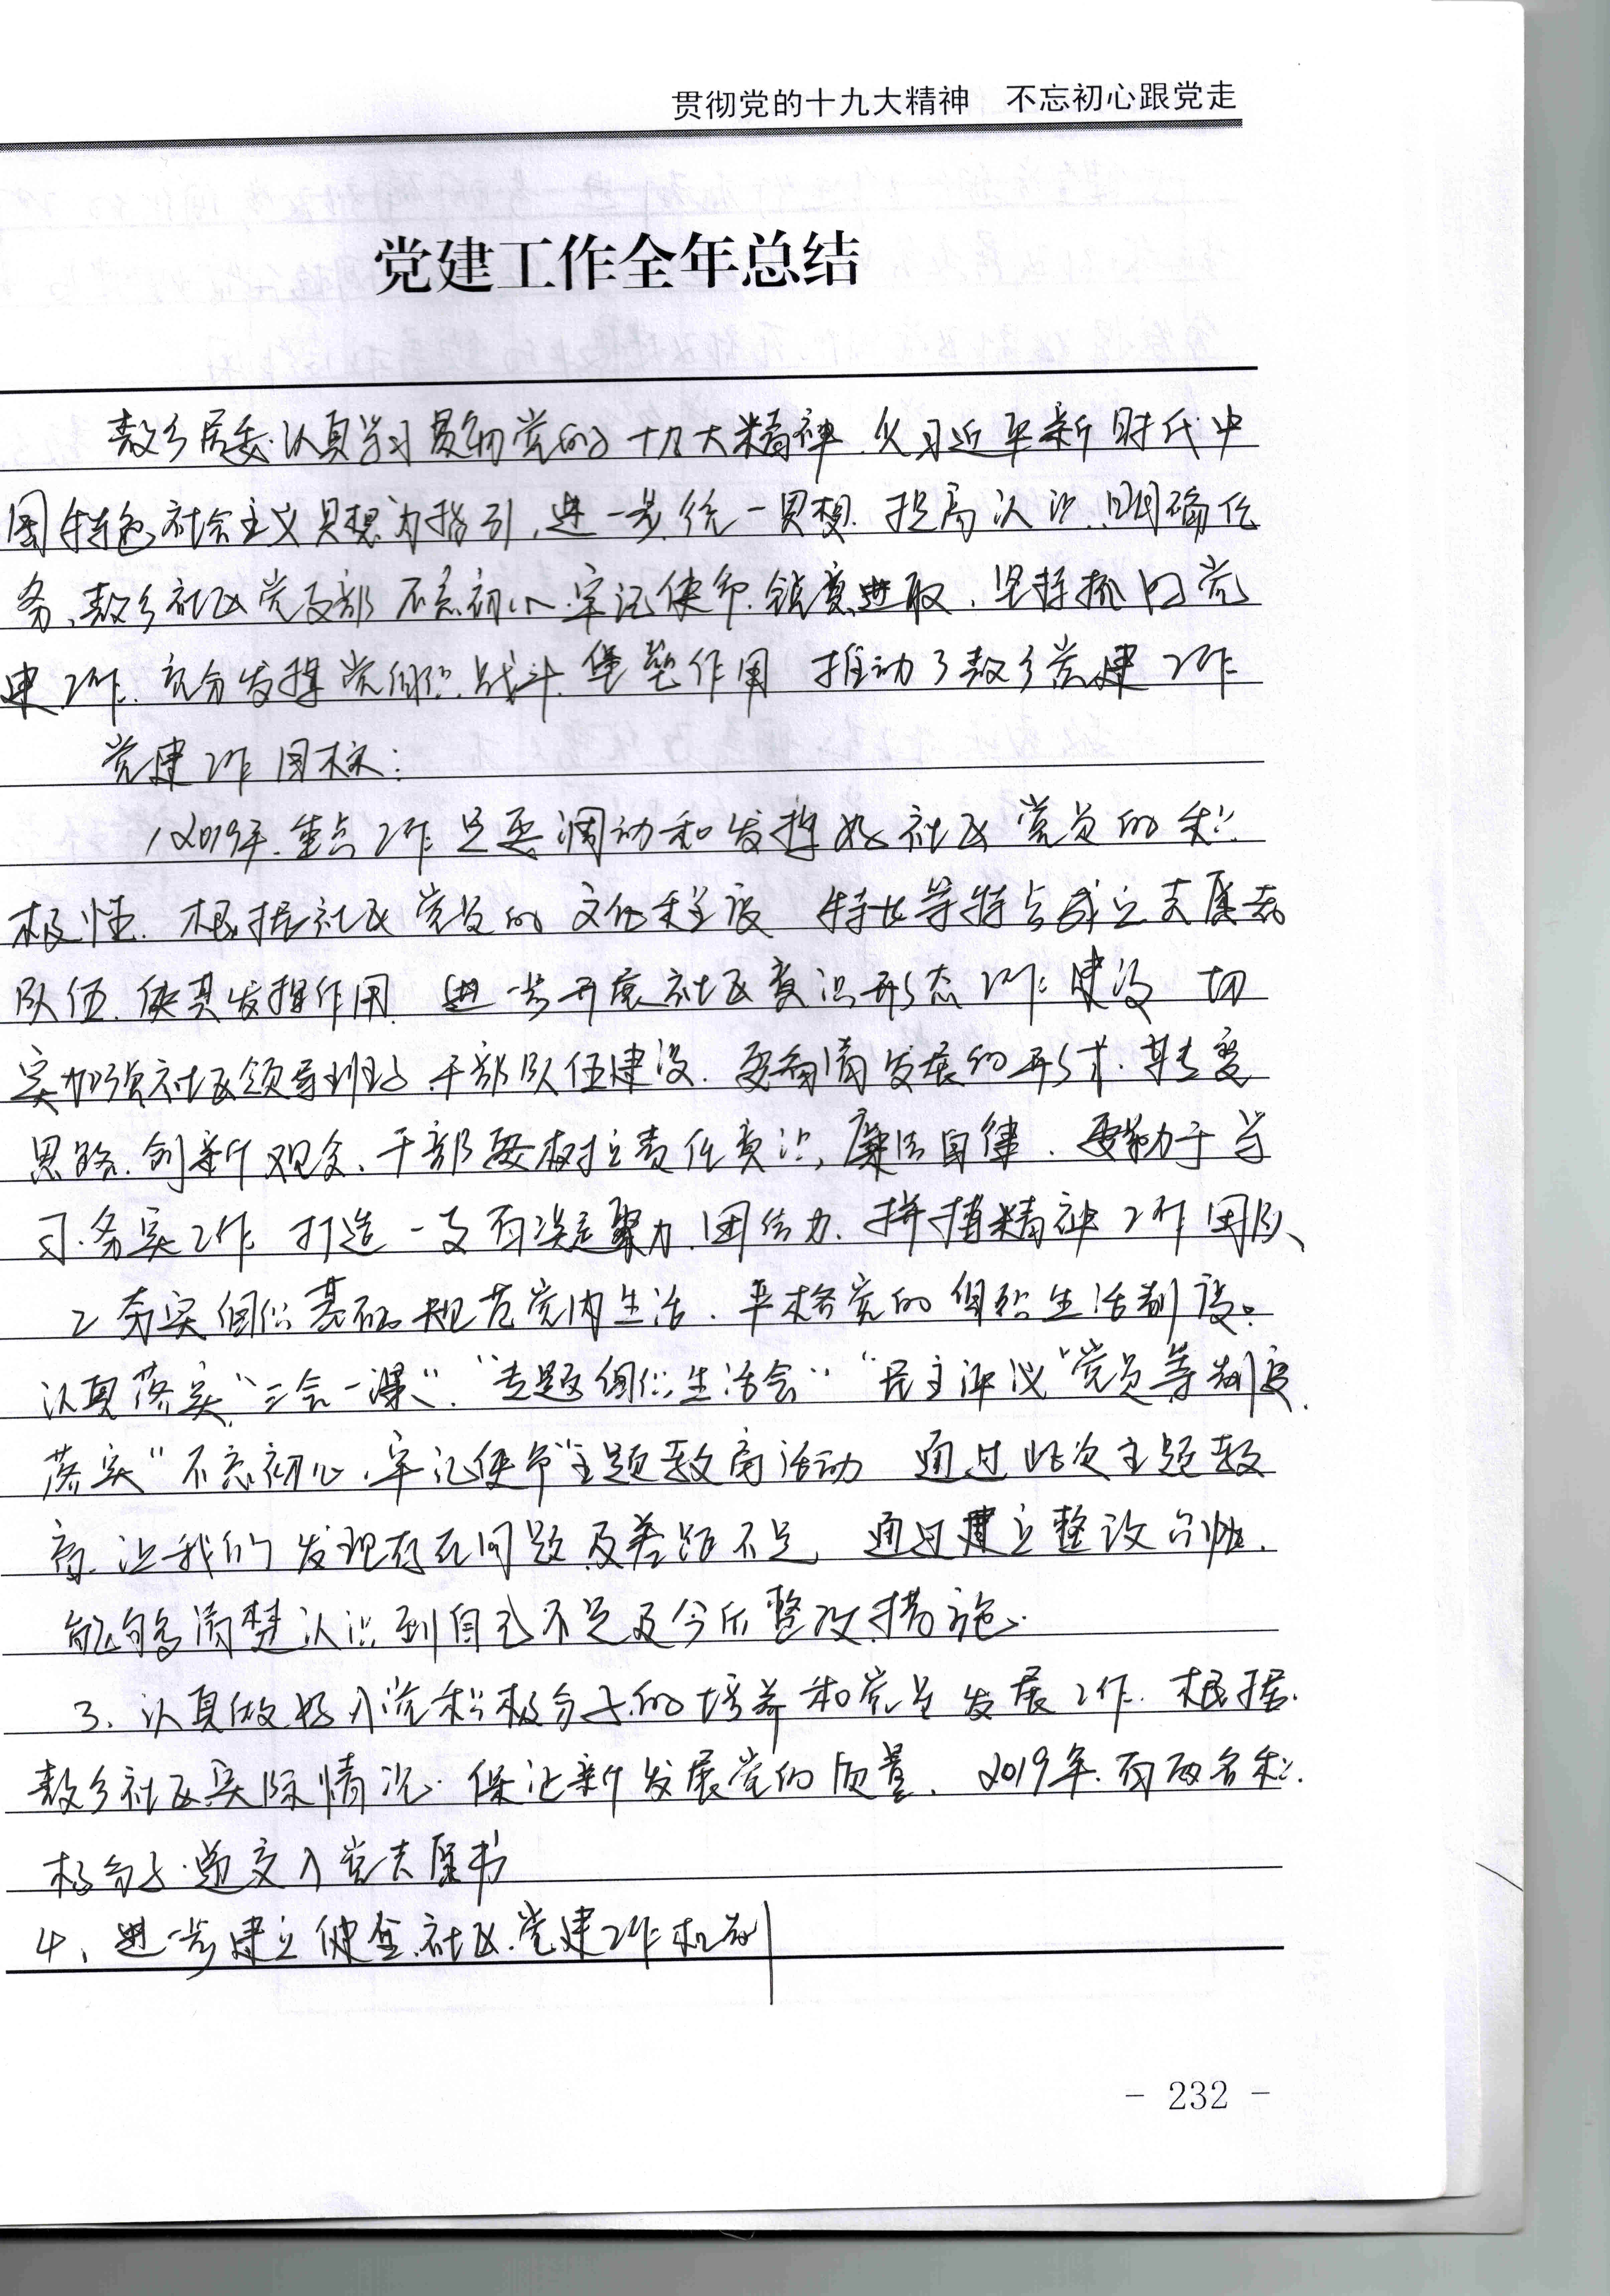 贯彻党的十九大精神 不忘初心跟党走
党建工作全年总结
教乡居委认真学习贯彻党的十九大精神、以习近平新时代中
国特色社会主义思想为指引，进一步统一思想、提高认识、明确任
务、教乡社区党支部不忘初心、牢记使命、锐意进取、坚持抓好党
建工作、充分发挥党组织战斗堡垒作用 推动了教乡党建工作
党建工作目标：
1、2019年重点工作是要调动和发挥好社区党员的积
极性、根据社区党员的文化程度 特长等特点成立志愿者
队伍、使其发挥作用、进一步开展社区意识形态工作建设 切
实加强社区领导班子、干部队伍建设、要看清发展的形式、转变
思路、创新观念、干部要树立责任意识，廉洁自律、要勤于学
习、务实工作 打造一支有凝聚力、团结力、拼搏精神工作团队、
2 夯实组织基础规范党内生活、严格党的组织生活制度。
认真落实“三会一课”、“专题组织生活会”“民主评议”党员等制度、
落实“不忘初心、牢记使命”主题教育活动 通过此次主题教
育、让我们发现存在问题及差距不足，通过建立整改台帐、
能够清楚认识到自己不足及今后整改措施、
3、认真做好入党积极分子的培养和党员发展工作、根据
教乡社区实际情况、保证新发展党的质量、2019年、有两名积
极分子递交入党志愿书
4、进一步建立健全社区党建工作机制
- 232 -